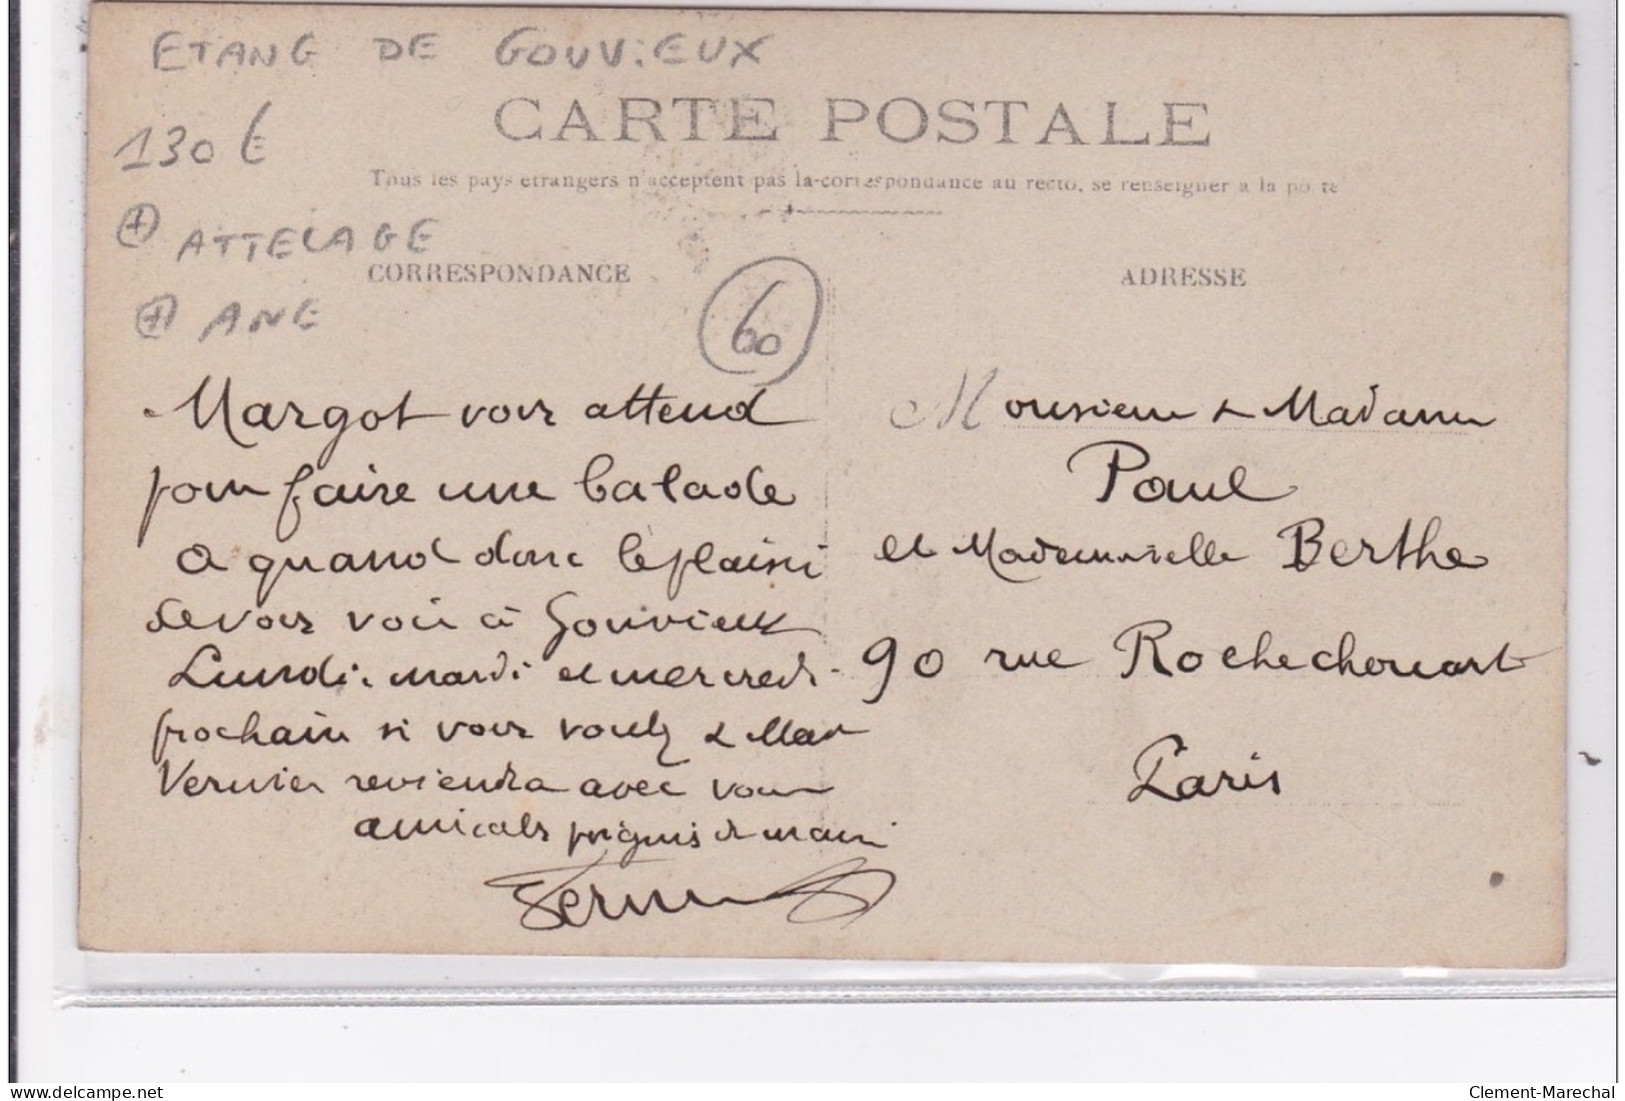 ETANG DE GOUVIEUX
CARTE POSTALE
130 €
Tous les pays etrangers n'acceptent pas la correspondance au recto, se renseigner a la poste
+ ATTELAGE
CORRESPONDANCE
ADRESSE
+ ANE
60
Margot vous attend
pour faire une balade
a quand donc le plaisir
de vous voir à Gouvieux
Lundi, mardi et mercredi
prochain si vous voulez &
Vernier reviendra avec vous
amicales poignées de main
Monsieur & Madame
Paul
et Mademoiselle Berthe
90 rue Rochechouart
Paris
delcampe.net
Clement-Marechal